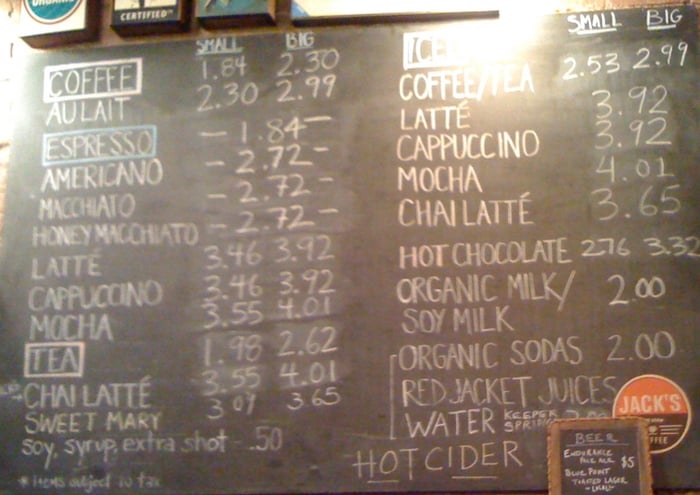 ORGANIC
CERTIFIED
SMALL BIG
COFFEE 1.84 2.30
AU LAIT 2.30 2.99
ESPRESSO - 1.84 -
AMERICANO - 2.72 -
MACCHIATO - 2.72 -
HONEY MACCHIATO - 2.72 -
LATTÉ 3.46 3.92
CAPPUCCINO 3.46 3.92
MOCHA 3.55 4.01
TEA 1.98 2.62
CHAI LATTÉ 3.55 4.01
SWEET MARY 3.07 3.65
soy, syrup, extra shot .50
* items subject to tax
SMALL BIG
ICED
COFFEE/TEA 2.53 2.99
LATTÉ 3.92
CAPPUCCINO 3.92
MOCHA 4.01
CHAI LATTÉ 3.65
HOT CHOCOLATE 2.76 3.32
ORGANIC MILK/ 2.00
SOY MILK
ORGANIC SODAS 2.00
RED JACKET JUICES
WATER KEEPER SPRINGS
HOT CIDER
JACK'S
COFFEE
BEER
ENDURANCE
PALE ALE $5
BLUE POINT
TOASTED LAGER
-LOCAL!-